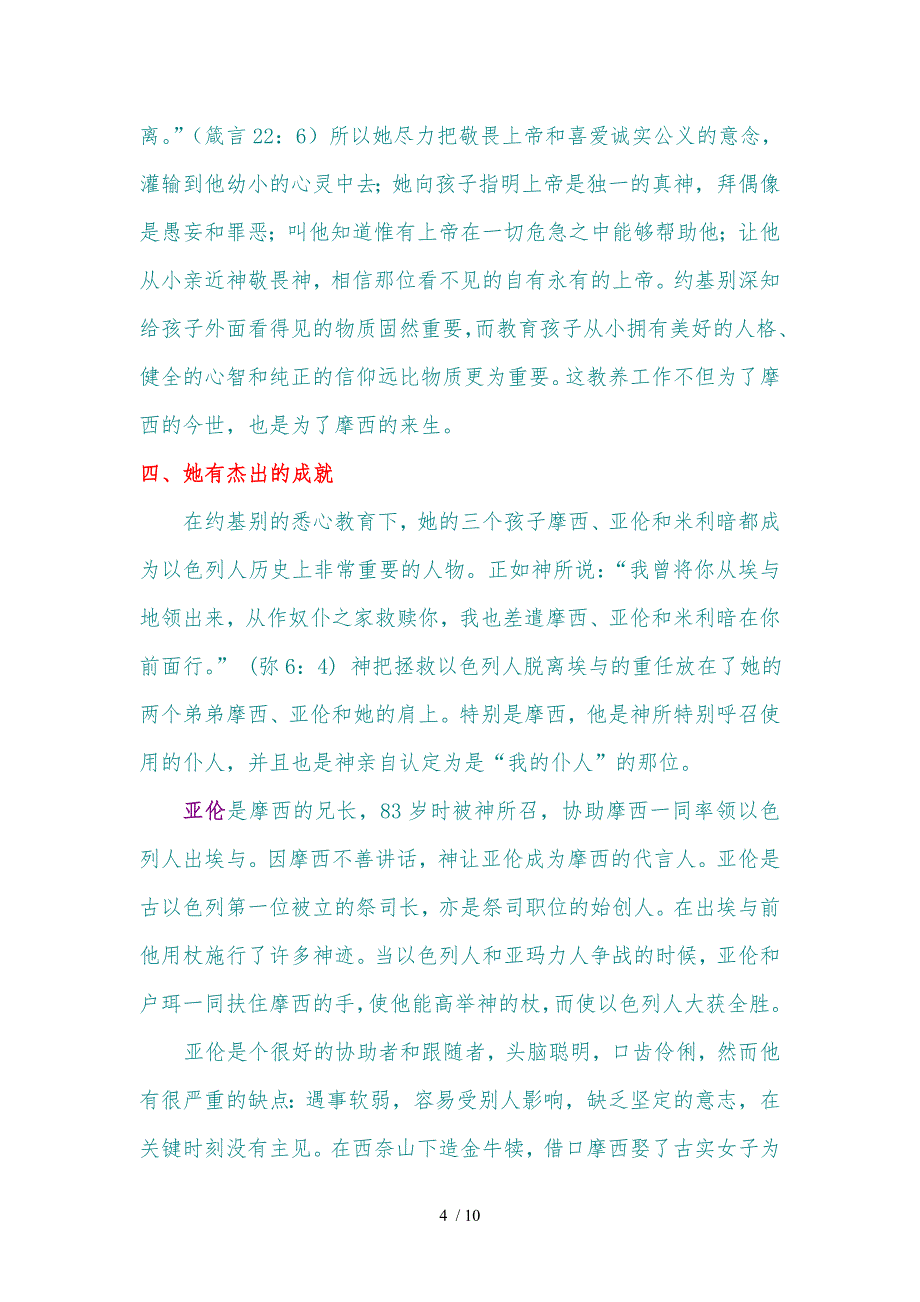 离。”（箴言 22：6）所以她尽力把敬畏上帝和喜爱诚实公义的意念，
灌输到他幼小的心灵中去；她向孩子指明上帝是独一的真神，拜偶像
是愚妄和罪恶；叫他知道惟有上帝在一切危急之中能够帮助他；让他
从小亲近神敬畏神，相信那位看不见的自有永有的上帝。约基别深知
给孩子外面看得见的物质固然重要，而教育孩子从小拥有美好的人格、
健全的心智和纯正的信仰远比物质更为重要。这教养工作不但为了摩
西的今世，也是为了摩西的来生。
四、她有杰出的成就
在约基别的悉心教育下，她的三个孩子摩西、亚伦和米利暗都成
为以色列人历史上非常重要的人物。正如神所说：“我曾将你从埃与
地领出来，从作奴仆之家救赎你，我也差遣摩西、亚伦和米利暗在你
前面行。” (弥 6：4) 神把拯救以色列人脱离埃与的重任放在了她的
两个弟弟摩西、亚伦和她的肩上。特别是摩西，他是神所特别呼召使
用的仆人，并且也是神亲自认定为是“我的仆人”的那位。
亚伦是摩西的兄长，83 岁时被神所召，协助摩西一同率领以色
列人出埃与。因摩西不善讲话，神让亚伦成为摩西的代言人。亚伦是
古以色列第一位被立的祭司长，亦是祭司职位的始创人。在出埃与前
他用杖施行了许多神迹。当以色列人和亚玛力人争战的时候，亚伦和
户珥一同扶住摩西的手，使他能高举神的杖，而使以色列人大获全胜。
亚伦是个很好的协助者和跟随者，头脑聪明，口齿伶俐，然而他
有很严重的缺点：遇事软弱，容易受别人影响，缺乏坚定的意志，在
关键时刻没有主见。在西奈山下造金牛犊，借口摩西娶了古实女子为
4 / 10